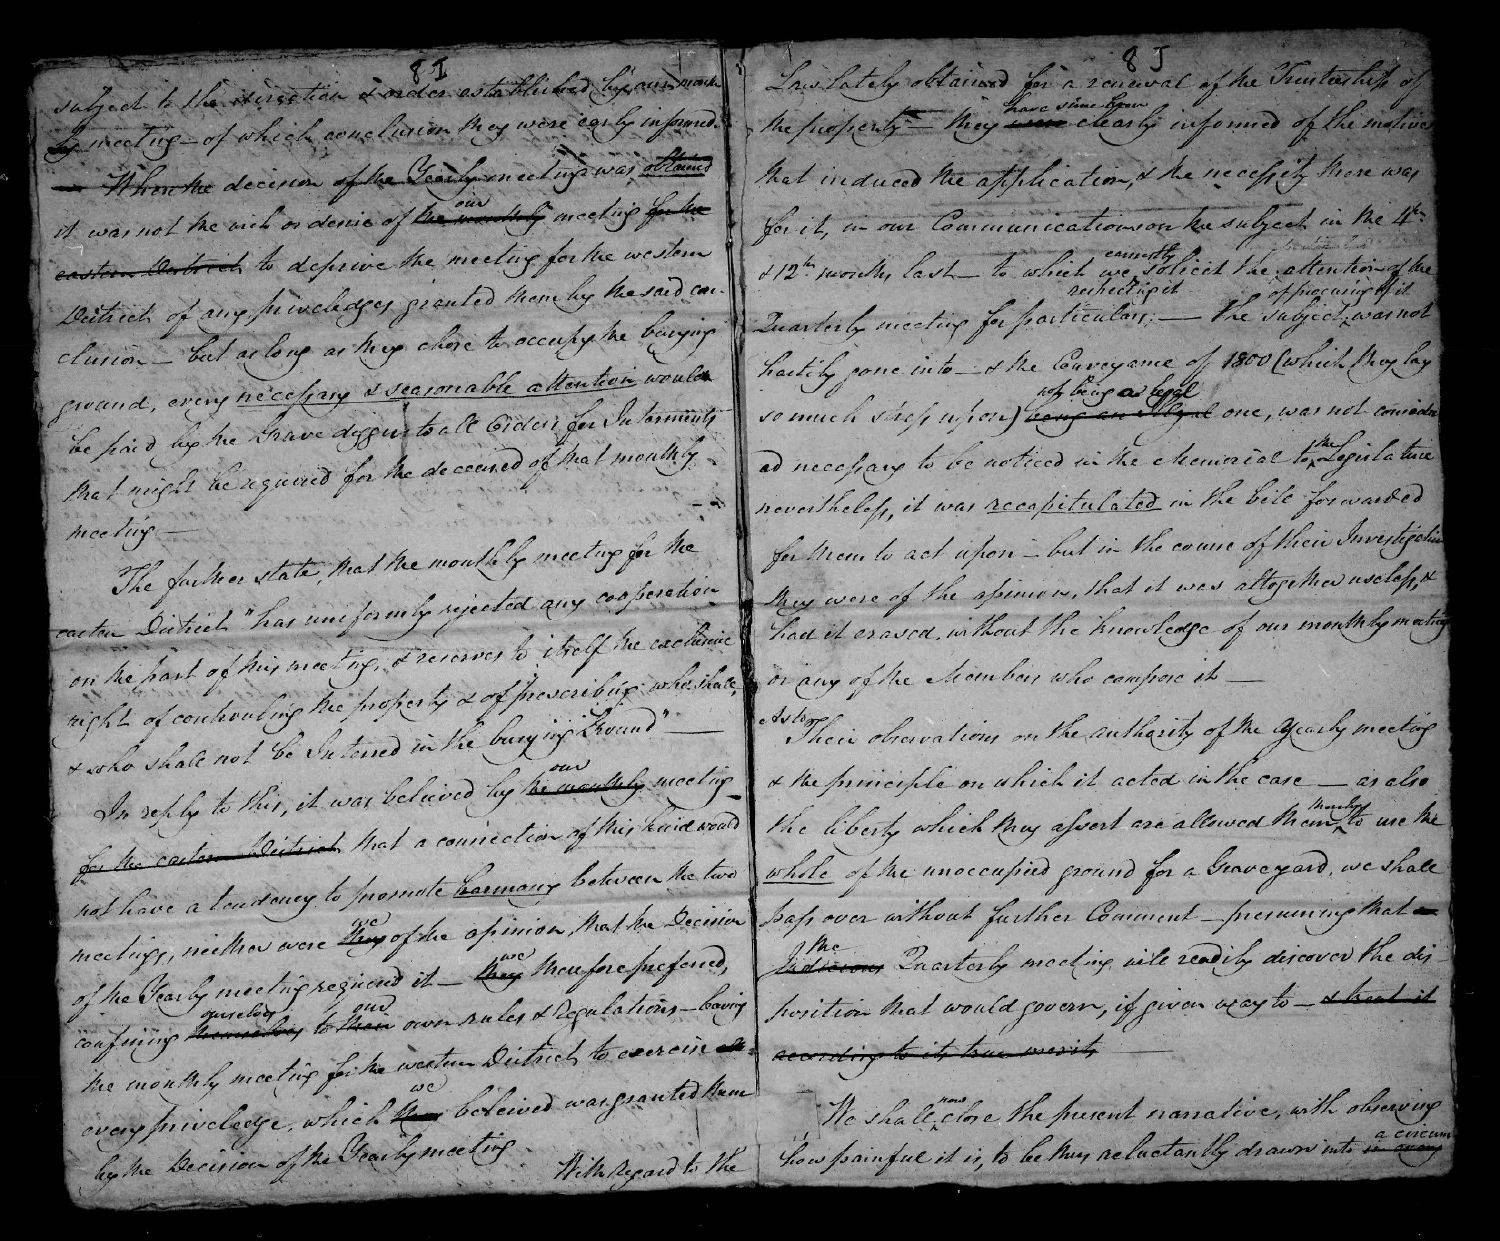 8 I
subject to the direction & order established by our month
ly meeting – of which conclusion they were early informed.
When the decision of the Yearly meeting was obtained
it was not the wish or desire of the monthly our meeting for the
eastern District to deprive the meeting for the western
District of any priveledges granted them by the said con-
clusion – but as long as they chose to occupy the burying
ground, every necessary & seasonable attention would
be paid by the Grave digger to all Orders for Interments
that might be required for the deceased of that monthly
meeting –
The further state, that the monthly meeting for the
eastern District "has uniformly rejected any cooperation
on the part of this meeting, & reserves to itself the exclusive
right of controuling the property & of prescribing who shall,
& who shall not be Interred in the burying Ground" –
In reply to this, it was believed by the monthly our meeting
for the eastern District that a connection of this kind would
not have a tendency to promote harmony between the two
meetings, neither were they we of the opinion, that the Decision
of the Yearly meeting required it – they we therefore preferred,
confining themselves ourselves to their our own rules & Regulations – leaving
the monthly meeting for the western District to exercise
every priveledge, which they we beleived was granted them
by the Decision of the Yearly meeting
With regard to the
8 J
Law lately obtained for a renewal of the Trusteeship of
the property – they were have since been clearly informed of the motives
that induced the application, & the necessity there was
for it, in our Communications on the subject in the 4th
& 12th months last – to which we earnestly solicit the attention of the
Quarterly meeting for particulars; – the subject respecting it of procuring it was not
hastily gone into – & the Conveyance of 1800 (which they lay
so much stress upon) being an illegal not being a legal one, was not consider
ed necessary to be noticed in the Memorial to the Legislature
nevertheless, it was recapitulated in the bill forwarded
for them to act upon – but in the course of their Investigation
they were of the opinion, that it was altogether useless, &
had it erased, without the knowledge of our monthly meeting
or any of the Members who compose it –
As to
Their observations on the authority of the Yearly meeting
& the principle on which it acted in the case – as also
the liberty which they assert are allowed them thereby to use the
whole of the unoccupied ground for a Graveyard, we shall
pass over without further Comment – presuming that
Judicious the Quarterly meeting will readily discover the dis-
position that would govern, if given way to – & treat it
according to its true merits –
We shall now close the present narrative, with observing
how painful it is, to be thus reluctantly drawn into a circum